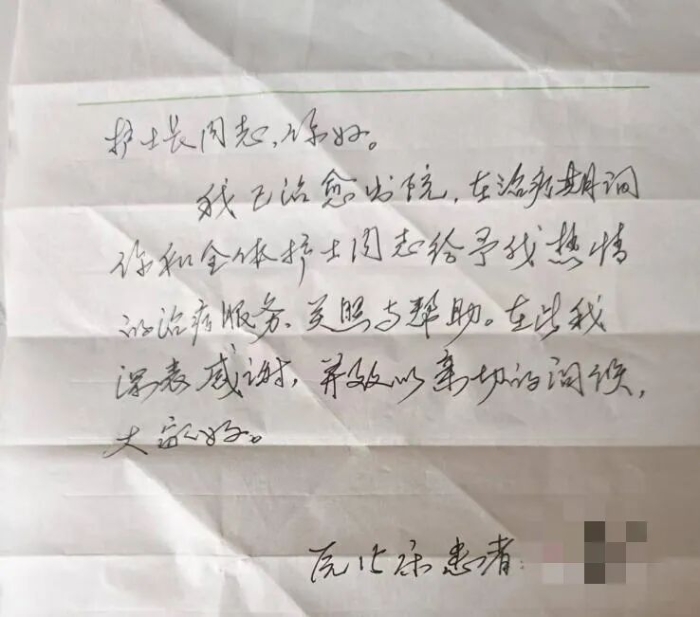 护士长同志，你好。
我已治愈出院，在治疗期间
你和全体护士同志给予我热情
的治疗服务、关照与帮助。在此我
深表感谢，并致以亲切的问候，
大家好。
患者：